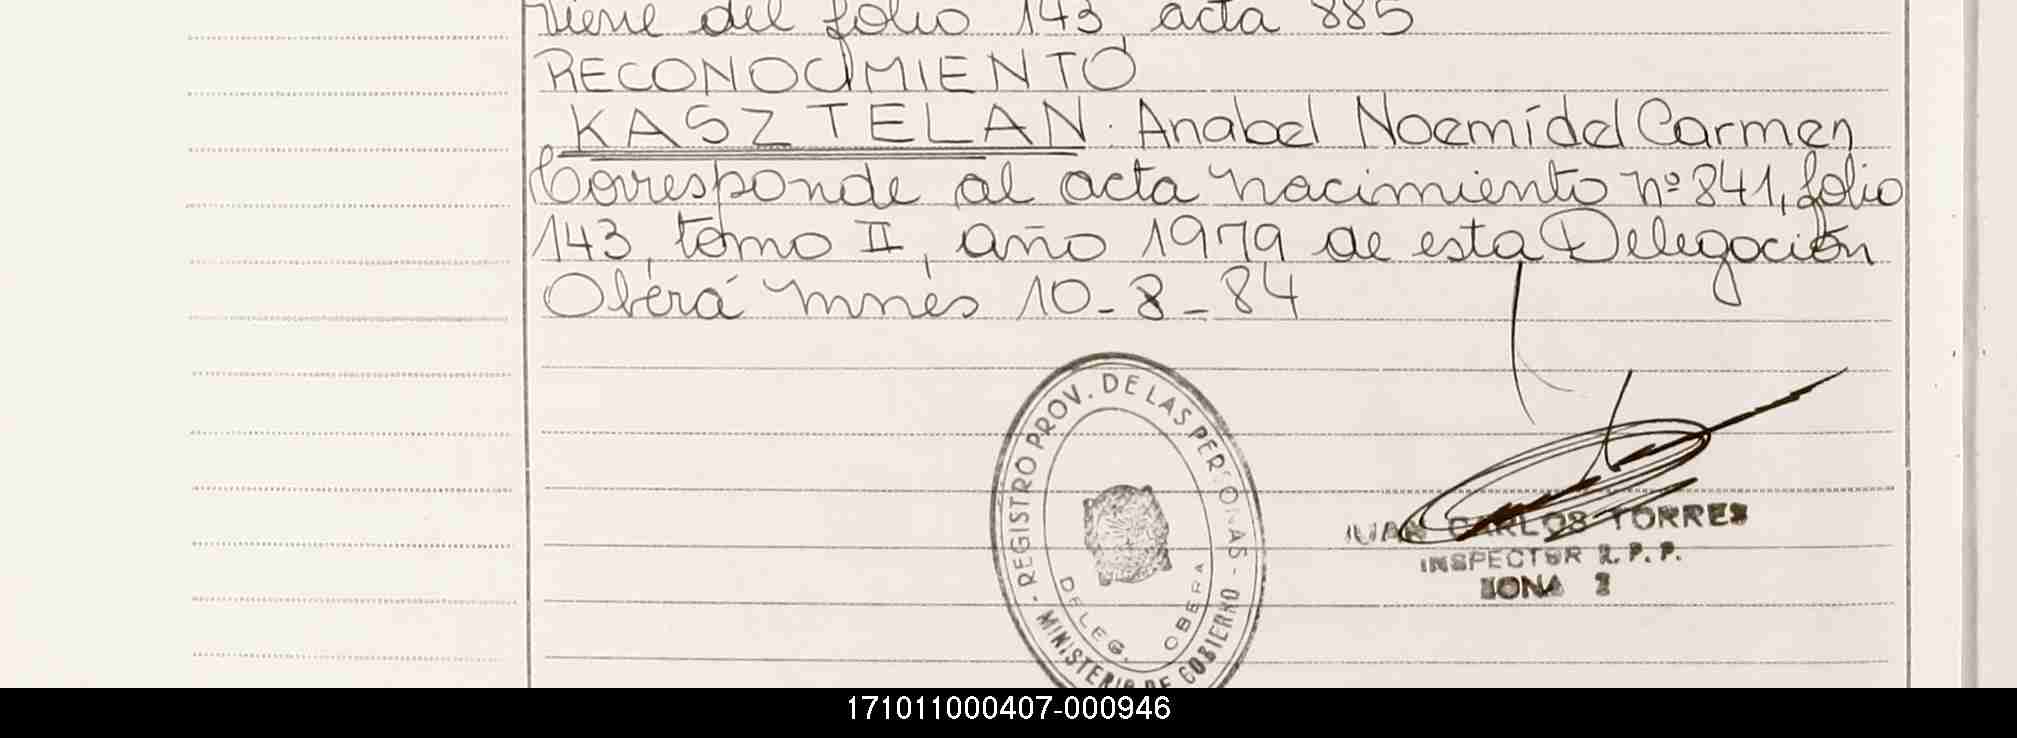 Viene del folio 143 acta 885
RECONOCIMIENTO
KASZTELAN. Anabel Noemí del Carmen
Corresponde al acta nacimiento nº 841, folio
143, tomo II, año 1979 de esta Delegación
Oberá Mnes 10-8-84
- REGISTRO PROV. DE LAS PERSONAS -
MINISTERIO DE GOBIERNO
DELEG. OBERA
JUAN CARLOS TORRES
INSPECTOR R. P. P.
ZONA 2
171011000407-000946